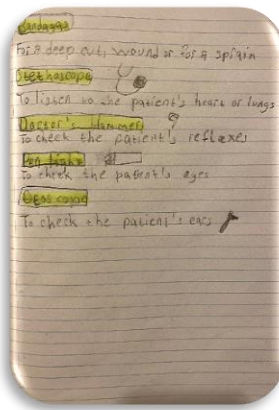 Bandages
For a deep cut, wound or for a sprain
Stethoscope
To listen to the patient's heart or lungs
Doctor's Hammer
To check the patient's reflexes
Pen light
To check the patient's eyes
Otoscope
To check the patient's ears